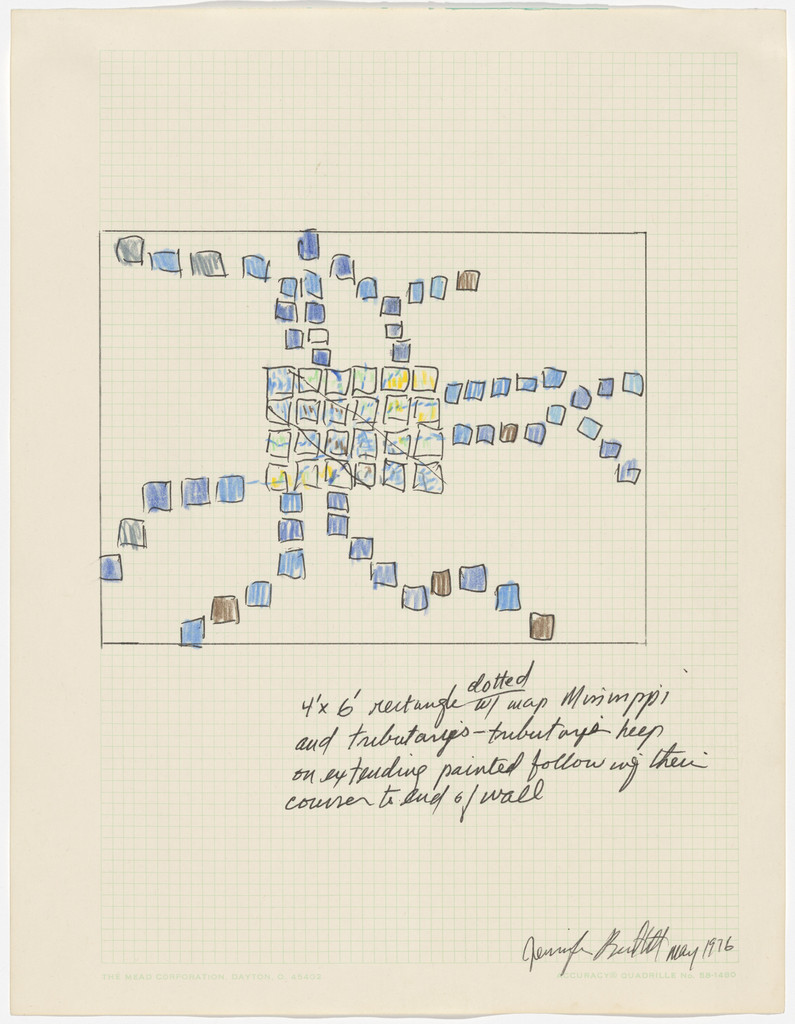 4'x 6' rectangle dotted w/ map Mississippi
and tributarys-tributarys keep
on extending painted following their
courses to end of wall
Jennifer Bartlett May 1976
THE MEAD CORPORATION DAYTON, O. 45402
ACCURACY® QUADRILLE No. 58-1460